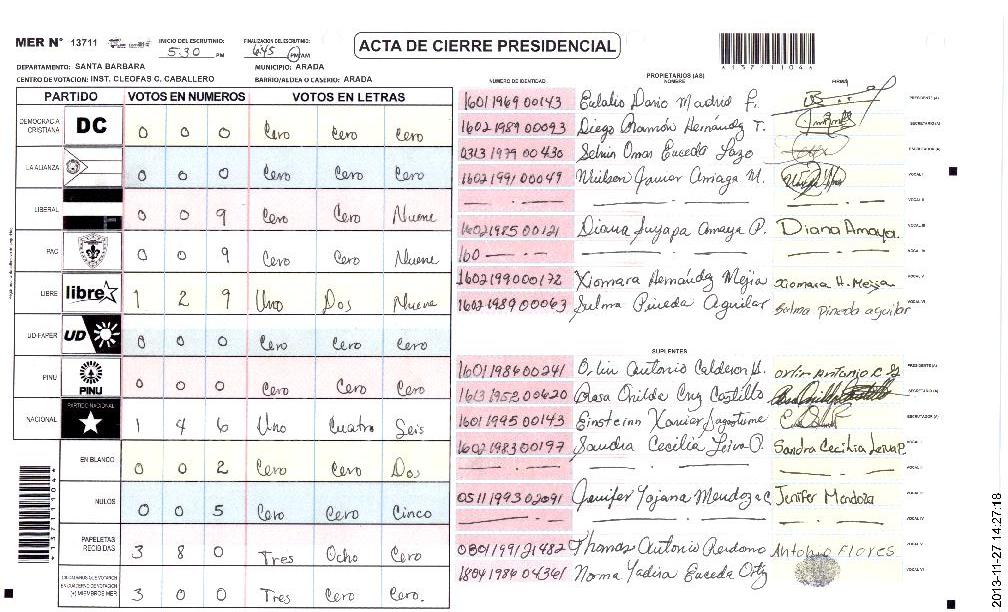 MER N° 13711 INICIO DEL ESCRUTINIO: 5:30 PM FINALIZACION DEL ESCRUTINIO: 6:45 PM AM
ACTA DE CIERRE PRESIDENCIAL
*1371104*
DEPARTAMENTO: SANTA BARBARA MUNICIPIO: ARADA
CENTRO DE VOTACION: INST. CLEOFAS C. CABALLERO BARRIO/ALDEA O CASERIO: ARADA
PARTIDO VOTOS EN NUMEROS VOTOS EN LETRAS
DEMOCRACIA CRISTIANA DC 0 0 0 Cero Cero Cero
LA ALIANZA 0 0 0 Cero Cero Cero
LIBERAL 0 0 9 Cero Cero Nueve
PAC 0 0 9 Cero Cero Nueve
LIBRE libre 1 2 9 Uno Dos Nueve
UD-FAPER UD 0 0 0 Cero Cero Cero
PINU PINU 0 0 0 Cero Cero Cero
NACIONAL PARTIDO NACIONAL 1 4 6 Uno Cuatro Seis
EN BLANCO 0 0 2 Cero Cero Dos
NULOS 0 0 5 Cero Cero Cinco
PAPELETAS RECIBIDAS 3 8 0 Tres Ocho Cero
CIUDADANOS QUE VOTARON EN CUADERNO DE VOTACION (+) MIEMBROS MER 3 0 0 Tres Cero Cero.
*1371104*
PROPIETARIOS (AS)
NUMERO DE IDENTIDAD NOMBRE FIRMA
1601 1969 00143 Eulalio Dario Madrid P. PRESIDENTE (A)
1602 1989 00093 Diego Ramón Hernández T. SECRETARIO (A)
0313 1979 00430 Selvin Omar Euceda Lazo ESCRUTADOR (A)
1602 1991 00049 Javier Amaya M. VOCAL I
VOCAL II
1602 1985 00121 Diana Suyapa Amaya P. Diana Amaya. VOCAL III
160 VOCAL IV
1602 1990 00172 Xiomara Hernández Mejia Xiomara H. Mejia VOCAL V
1602 1989 00063 Selma Pineda Aguilar Selma Pineda aguilar VOCAL VI
SUPLENTES
1601 1986 00241 Orlin Antonio Calderon H. Orlin Antonio C PRESIDENTE (A)
1613 1952 00620 Rosa Onilda Cruz Castillo SECRETARIO (A)
1601 1995 00143 Einsteinn Xavier Sagastume ESCRUTADOR (A)
1602 1983 00197 Sandra Cecilia Leiva P. Sandra Cecilia Leiva P. VOCAL I
VOCAL II
0511 1993 02091 Jenifer Yojana Mendoza C Jenifer Mendoza VOCAL III
VOCAL IV
0801 1991 21482 Thomas Antonio Redondo Antonio Flores VOCAL V
1804 1986 04361 Norma Yadira Euceda Ortiz VOCAL VI
2013-11-27 14:27:18